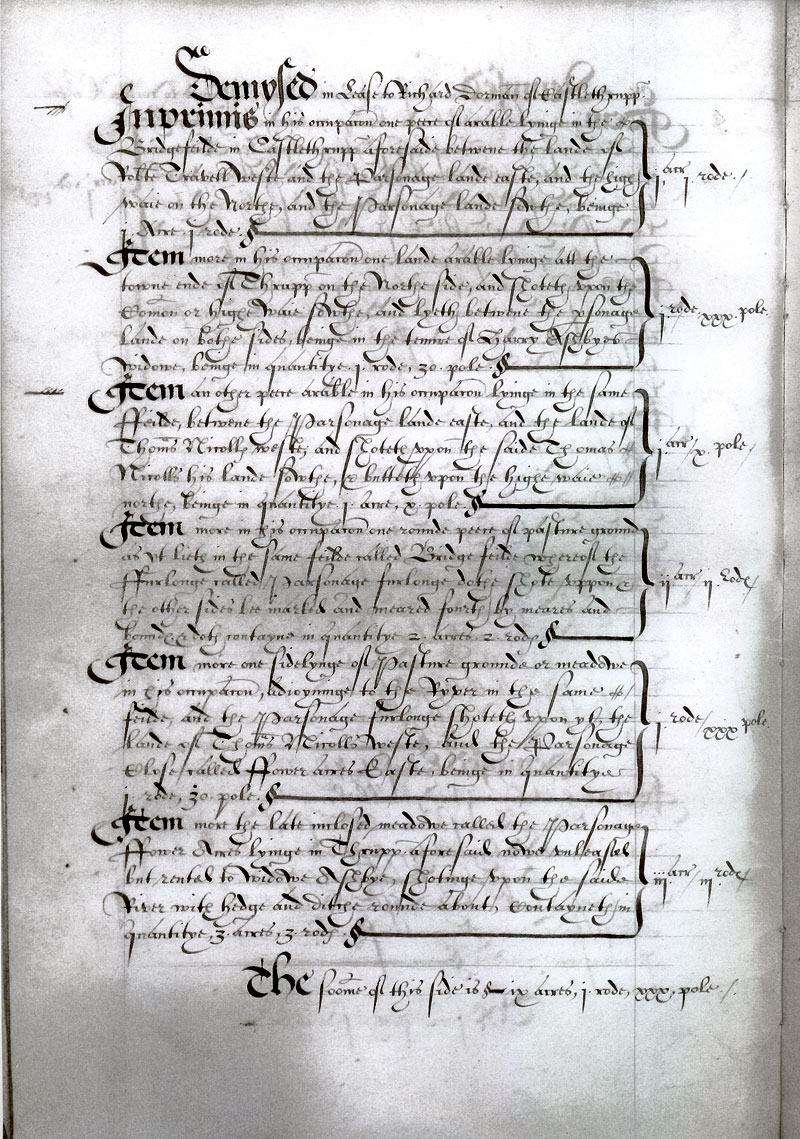 Demysed in Lease to Richard Dorman of Eastlethrupp
Inprimis in his occupacon one peece of arable lyinge in the
Bridgefeilde in Eastlethrupp aforesaide betwene the lande of
Robte Travell weste, and the Parsonage lande easte, and the high
waie on the Northe, and the Parsonage lande sowthe, beinge
j. Acre, j. rode. j. acr j. rode.
Item more in his occupacon one lande arable lyinge att the
towne ende of Thrupp on the Northe side, and shoteth vpon the
Comon or highe waie sowthe, and lyeth betwene the psonage
lande on bothe sides, beinge in the tenure of Harry Ashbyes
widowe, beinge in quantitye .j. rode, 30. pole. j. rode, xxx. pole.
Item an other peece arable in his occupacon lyinge in the same
ffeilde, betwene the Parsonage lande easte, and the lande of
Thoms Nicolls weste, and shoteth vpon the saide Thomas
Nicolls his lande sowthe, & butteth vpon the highe waie
northe, beinge in quantitye j. acre, x. pole. j. acr x. pole
Item more in his occupacon one rounde peece of pasture ground
as yt lieth in the same feilde called Bridge feilde whereof the
ffurlonge called Parsonage furlonge dothe shote vppon &
the other sides bee marked and meared fourth by meares and
bounds & doth contayne in quantitye 2. acres. 2. rods ij acr ij. rods
Item more one sidelynge of Pasture grounde or meadowe
in his occupacon, adioyninge to the Ryver in the same
feilde, and the Parsonage furlonge shoteth vpon yt, the
lande of Thoms Nicolls weste, and the Parsonage
Close called ffower acres Easte, beinge in quantitye
j. rode, 30. pole. j. rode xxx pole.
Item more the late inclosed meadowe called the Parsonage
ffower Acres lyinge in Thrupp aforesaid nowe vnleased
but rented to widowe Ashbye, shotinge vpon the saide
River with hedge and ditche rounde about, Contayneth in
quantitye, 3. acres, 3. rods. iij acr iij. rods
The soome of this side is ix acres, j. rode, xxx, pole.